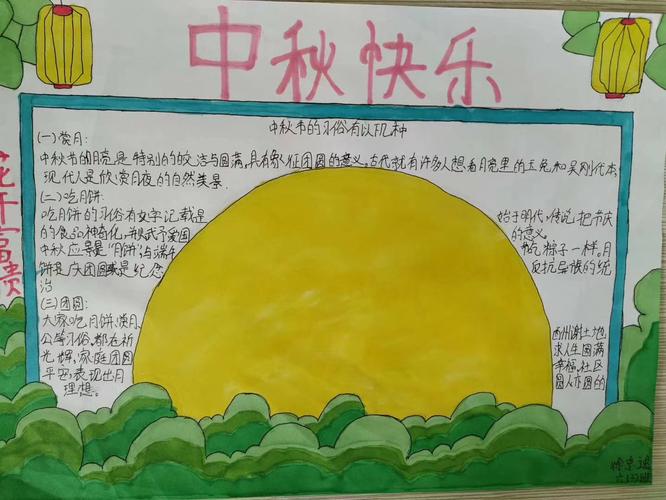 中秋快乐
花开富贵
中秋节的习俗有以下几种
(一)赏月:
中秋节的月亮是特别的皎洁与圆满,具有象征团圆的意义。古代就有许多人想看月亮里的玉兔和吴刚代本,
现代人是欣赏月夜的自然美景.
(二)吃月饼:
吃月饼的习俗有文字记载是 始于明代,传说把节庆
的食品神奇化,并赋予爱国 的意义。
中秋应景是"月饼"与端午 吃粽子一样。月
饼是庆团圆或是纪念 反抗异族的统
治
(三)团圆:
大家吃月饼,赏月, 谢土地
公等习俗,都在祈 求人生圆满
光辉,家庭团圆 幸福,社区
平安,表现出月 圆人亦圆的
理想。